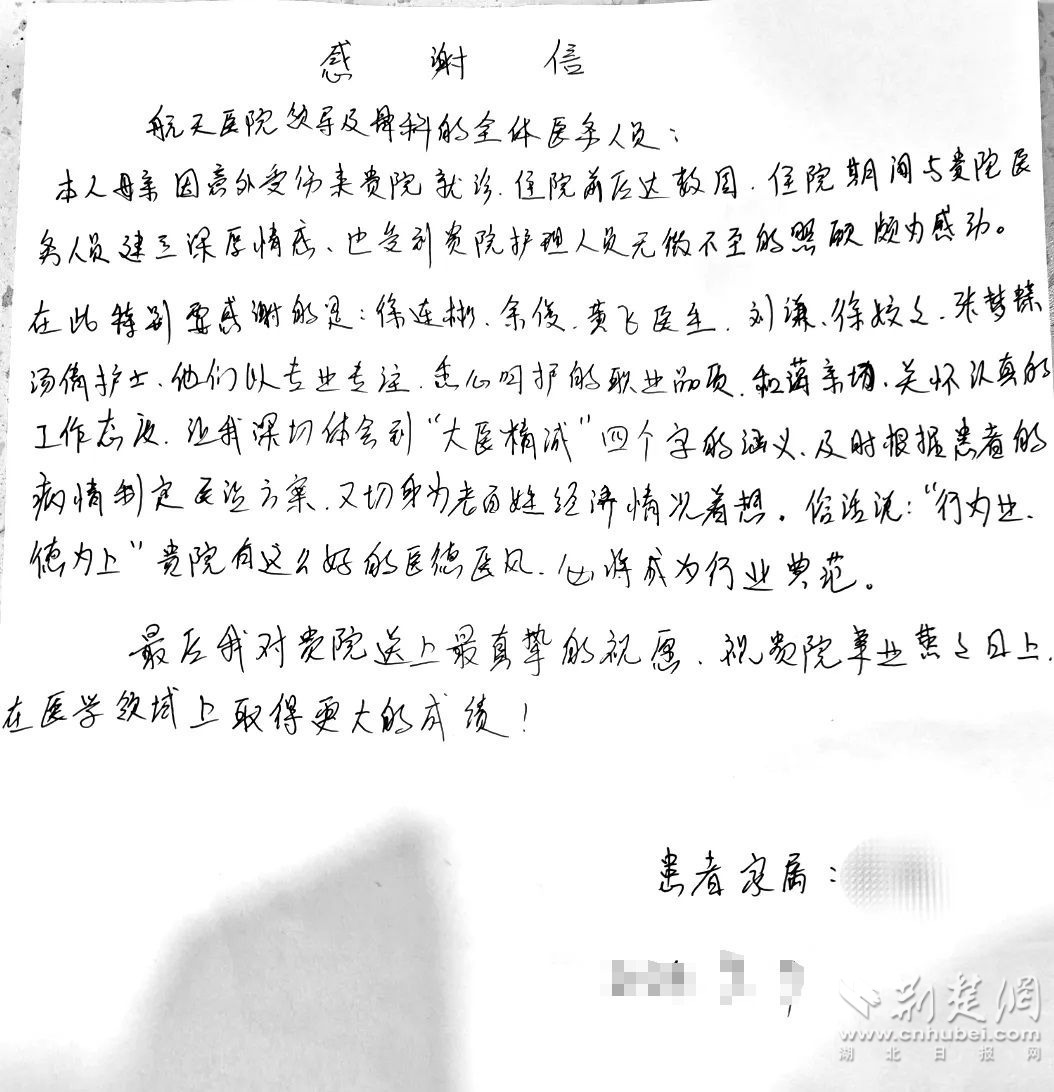 感 谢 信
航天医院领导及骨科的全体医务人员：
本人母亲因意外受伤来贵院就诊.住院前后达数周.住院期间与贵院医
务人员建立深厚情感、也受到贵院护理人员无微不至的照顾颇为感动。
在此特别要感谢的是：徐连彬、余俊、黄飞医生.刘谦、徐姣文、张梦蝶
汤倩护士、他们以专业专注.悉心呵护的职业品质.和蔼亲切、关怀认真的
工作态度.让我深切体会到“大医精诚”四个字的涵义、及时根据患者的
病情制定医治方案、又切身为老百姓经济情况着想。俗话说：“行为业.
德为上”贵院有这么好的医德医风、必将成为行业典范。
最后我对贵院送上最真挚的祝愿、祝贵院事业蒸々日上.
在医学领域上取得更大的成绩！
患者家属：
荆楚网
www.cnhubei.com
湖北日报网